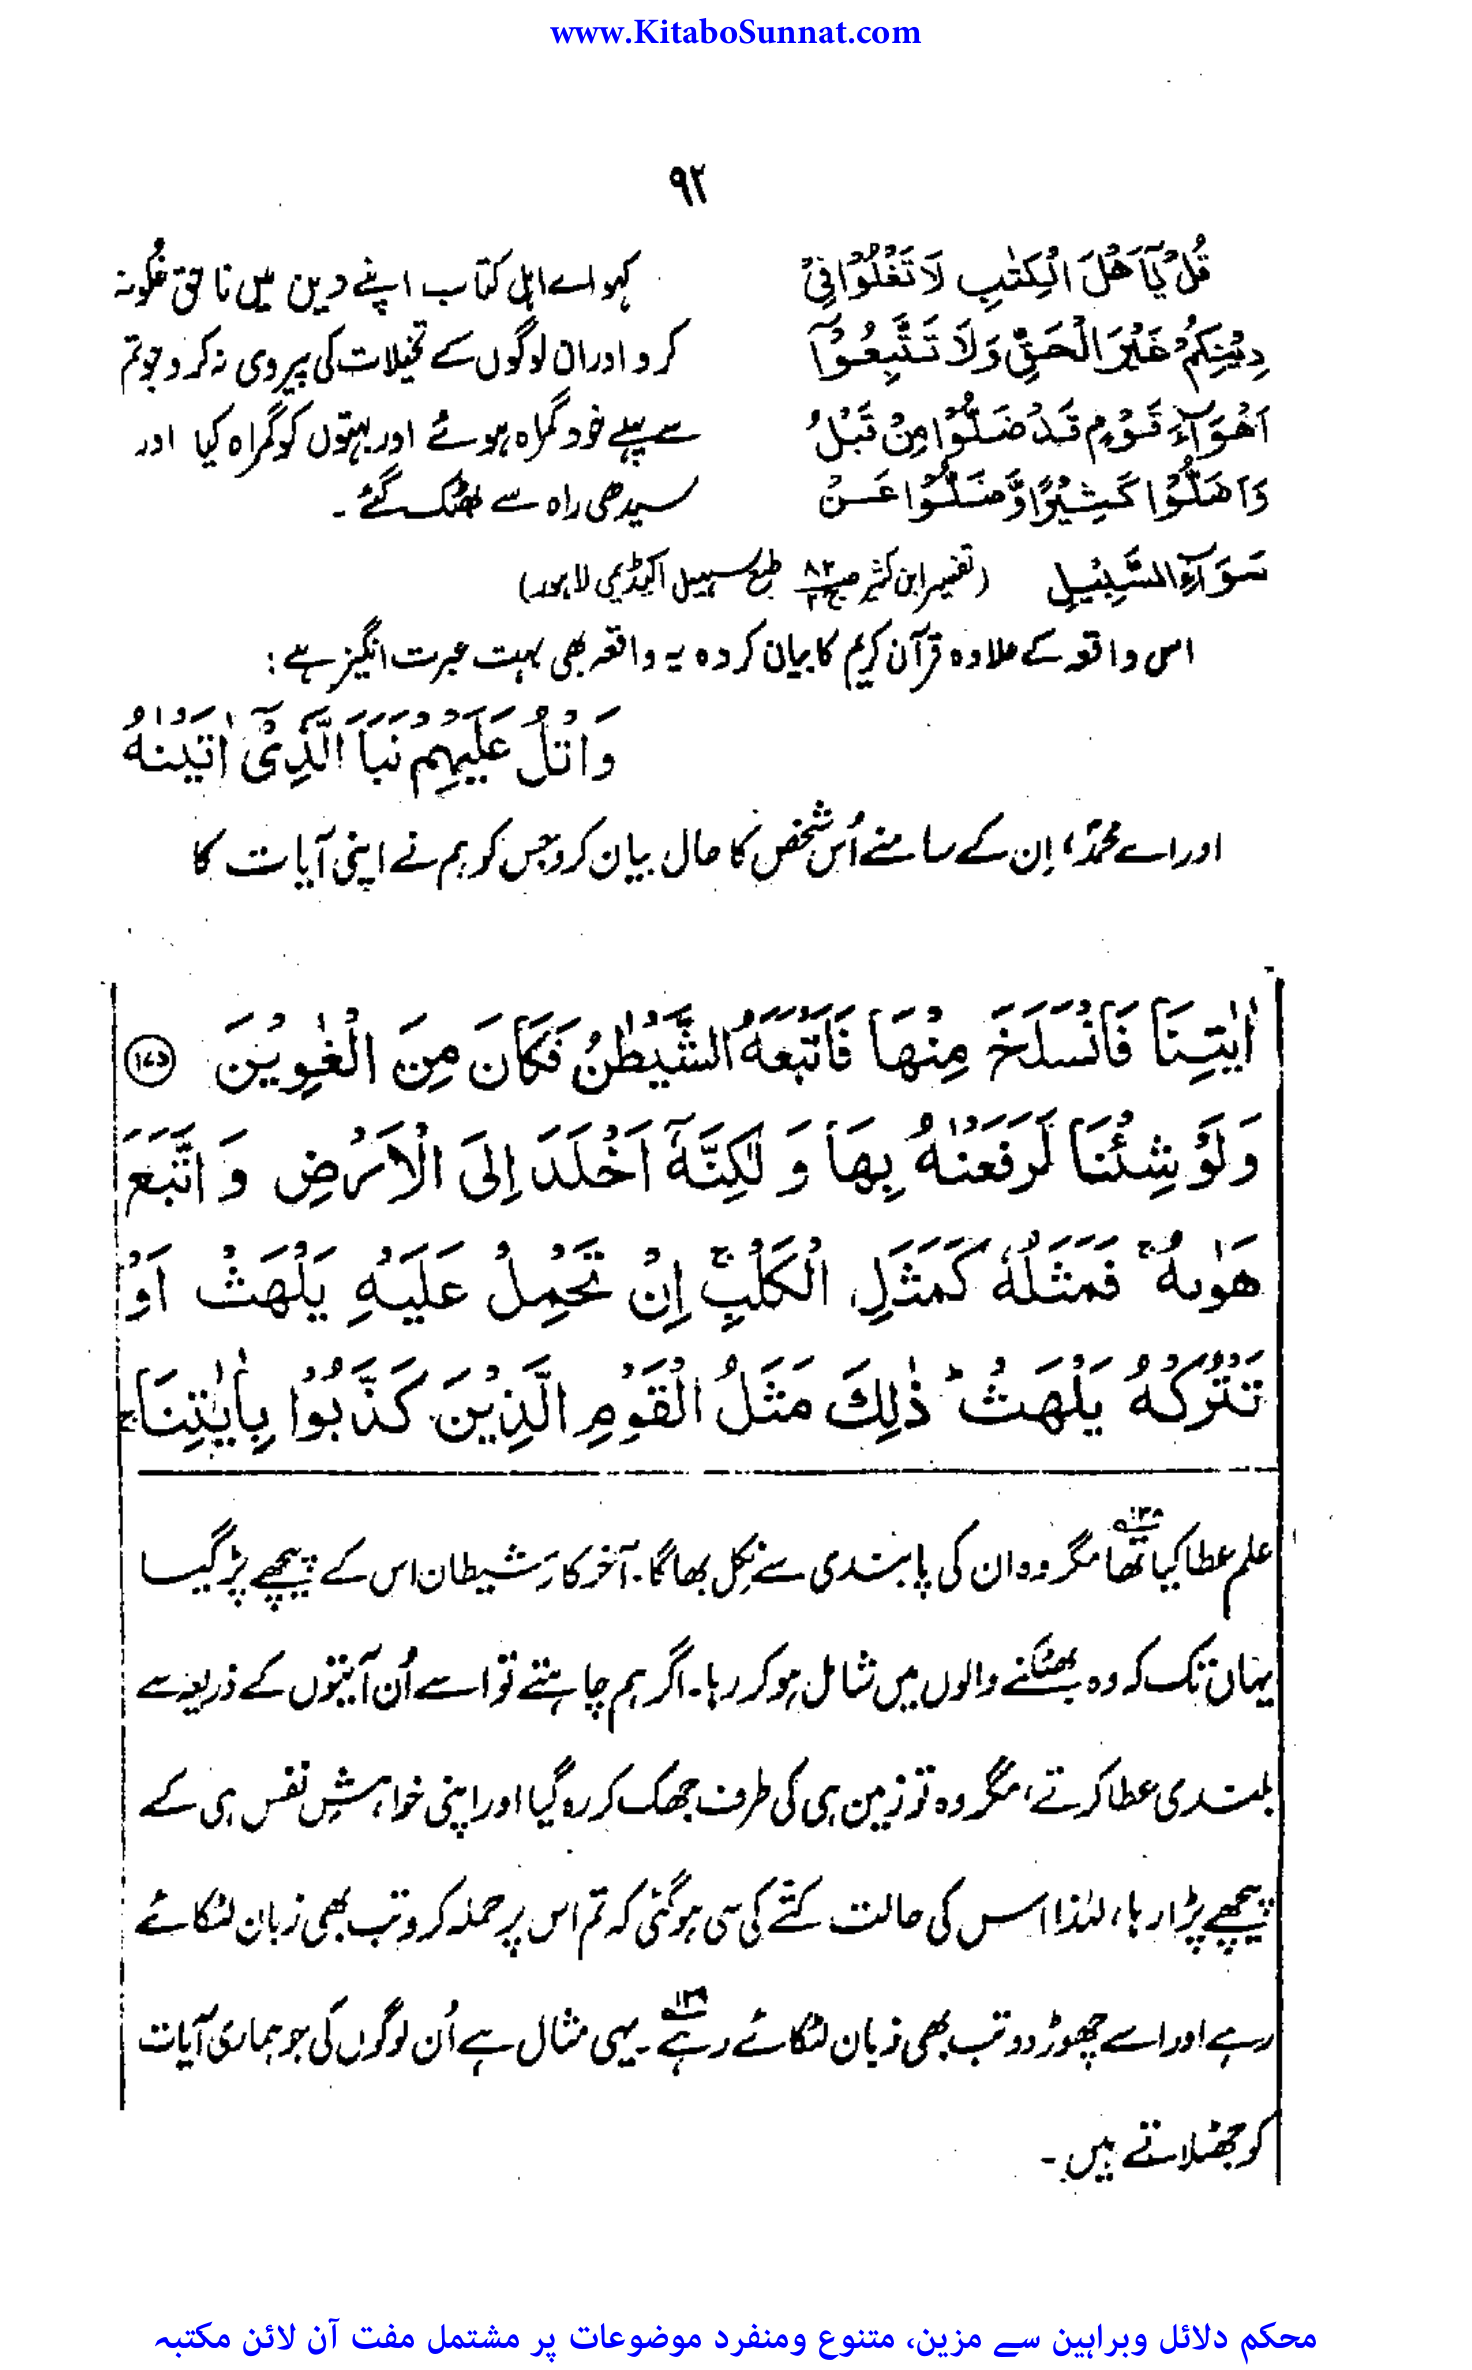 www.KitaboSunnat.com
۹۲
قُلْ يٰٓاَهْلَ الْكِتٰبِ لَا تَغْلُوْا فِيْ
دِيْنِكُمْ غَيْرَ الْحَقِّ وَلَا تَتَّبِعُوْٓا
اَهْوَآءَ قَوْمٍ قَدْ ضَلُّوْا مِنْ قَبْلُ
وَاَضَلُّوْا كَثِيْرًا وَّضَلُّوْا عَنْ
سَوَآءِ السَّبِيْلِ
کہو اے اہل کتاب اپنے دین میں ناحق غُلو نہ
کرو اور ان لوگوں کے تخیلات کی پیروی نہ کرو جو تم
سے پہلے خود گمراہ ہوئے اور بہتوں کو گمراہ کیا اور
سیدھی راہ سے بھٹک گئے ۔
(تفسیر ابن کثیر ص۸۲ ج۲ طبع سہیل اکیڈیمی لاہور)
اس واقعہ کے علاوہ قرآن کریم کا بیان کردہ یہ واقعہ بھی بہت عبرت انگیز ہے :
وَاتْلُ عَلَيْهِمْ نَبَاَ الَّذِيْٓ اٰتَيْنٰهُ
اور اے محمدؐ، اِن کے سامنے اُس شخص کا حال بیان کرو جس کو ہم نے اپنی آیات کا
اٰيٰتِنَا فَانْسَلَخَ مِنْهَا فَاَتْبَعَهُ الشَّيْطٰنُ فَكَانَ مِنَ الْغٰوِيْنَ ﴿۱۷۵﴾
وَلَوْ شِئْنَا لَرَفَعْنٰهُ بِهَا وَ لٰكِنَّهٗٓ اَخْلَدَ اِلَى الْاَرْضِ وَ اتَّبَعَ
هَوٰىهُ ۚ فَمَثَلُهٗ كَمَثَلِ الْكَلْبِ ۚ اِنْ تَحْمِلْ عَلَيْهِ يَلْهَثْ اَوْ
تَتْرُكْهُ يَلْهَثْ ؕ ذٰلِكَ مَثَلُ الْقَوْمِ الَّذِيْنَ كَذَّبُوْا بِاٰيٰتِنَا ۚ
علم عطا کیا تھا۱۳۸ مگر وہ ان کی پابندی سے نکل بھاگا۔ آخر کار شیطان اس کے پیچھے پڑ گیا
یہاں تک کہ وہ بھٹکنے والوں میں شامل ہو کر رہا۔ اگر ہم چاہتے تو اسے اُن آیتوں کے ذریعہ سے
بلندی عطا کرتے، مگر وہ تو زمین ہی کی طرف جھک کر رہ گیا اور اپنی خواہشِ نفس ہی کے
پیچھے پڑا رہا، لہٰذا اس کی حالت کتّے کی سی ہو گئی کہ تم اس پر حملہ کرو تب بھی زبان لٹکائے
رہے اور اسے چھوڑ دو تب بھی زبان لٹکائے رہے۱۳۹ ۔ یہی مثال ہے اُن لوگوں کی جو ہماری آیات
کو جھٹلاتے ہیں ۔
محکم دلائل وبراہین سے مزین، متنوع ومنفرد موضوعات پر مشتمل مفت آن لائن مکتبہ